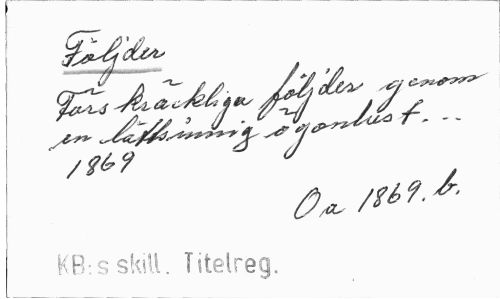 Följder
Förskräckliga följder genom
en lättsinnig ögonlust...
1869
Oa 1869.b.
KB:s skill. Titelreg.